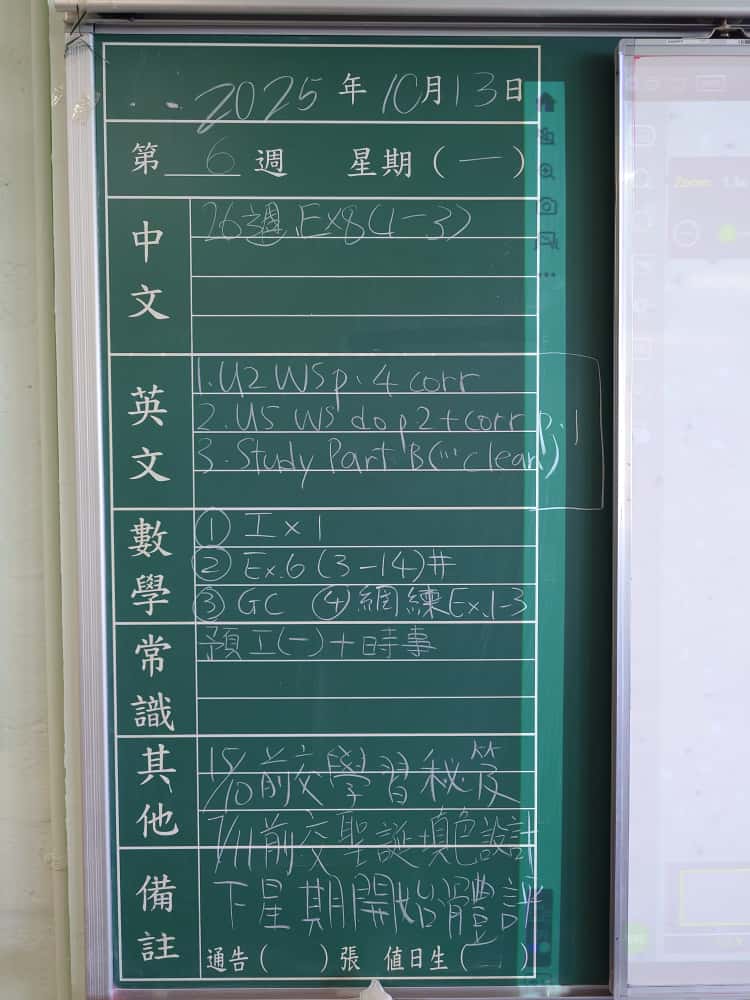 2025年10月13日
第6週 星期(一)
中文
26週.Ex8(1-3)
英文
1.U2 WS p.4 corr
2.U5 WS do p2+corr p.1
3.Study Part B( clean)
數學
① 工x1
② Ex.6 (3-14)#
③ GC ④ 網練Ex.1-3
常識
預工(一)+時事
其他
15/10前交學習秘笈
7/11前交聖誕填色設計
備註
下星期開始體評
通告( )張 值日生( )
Zoom: